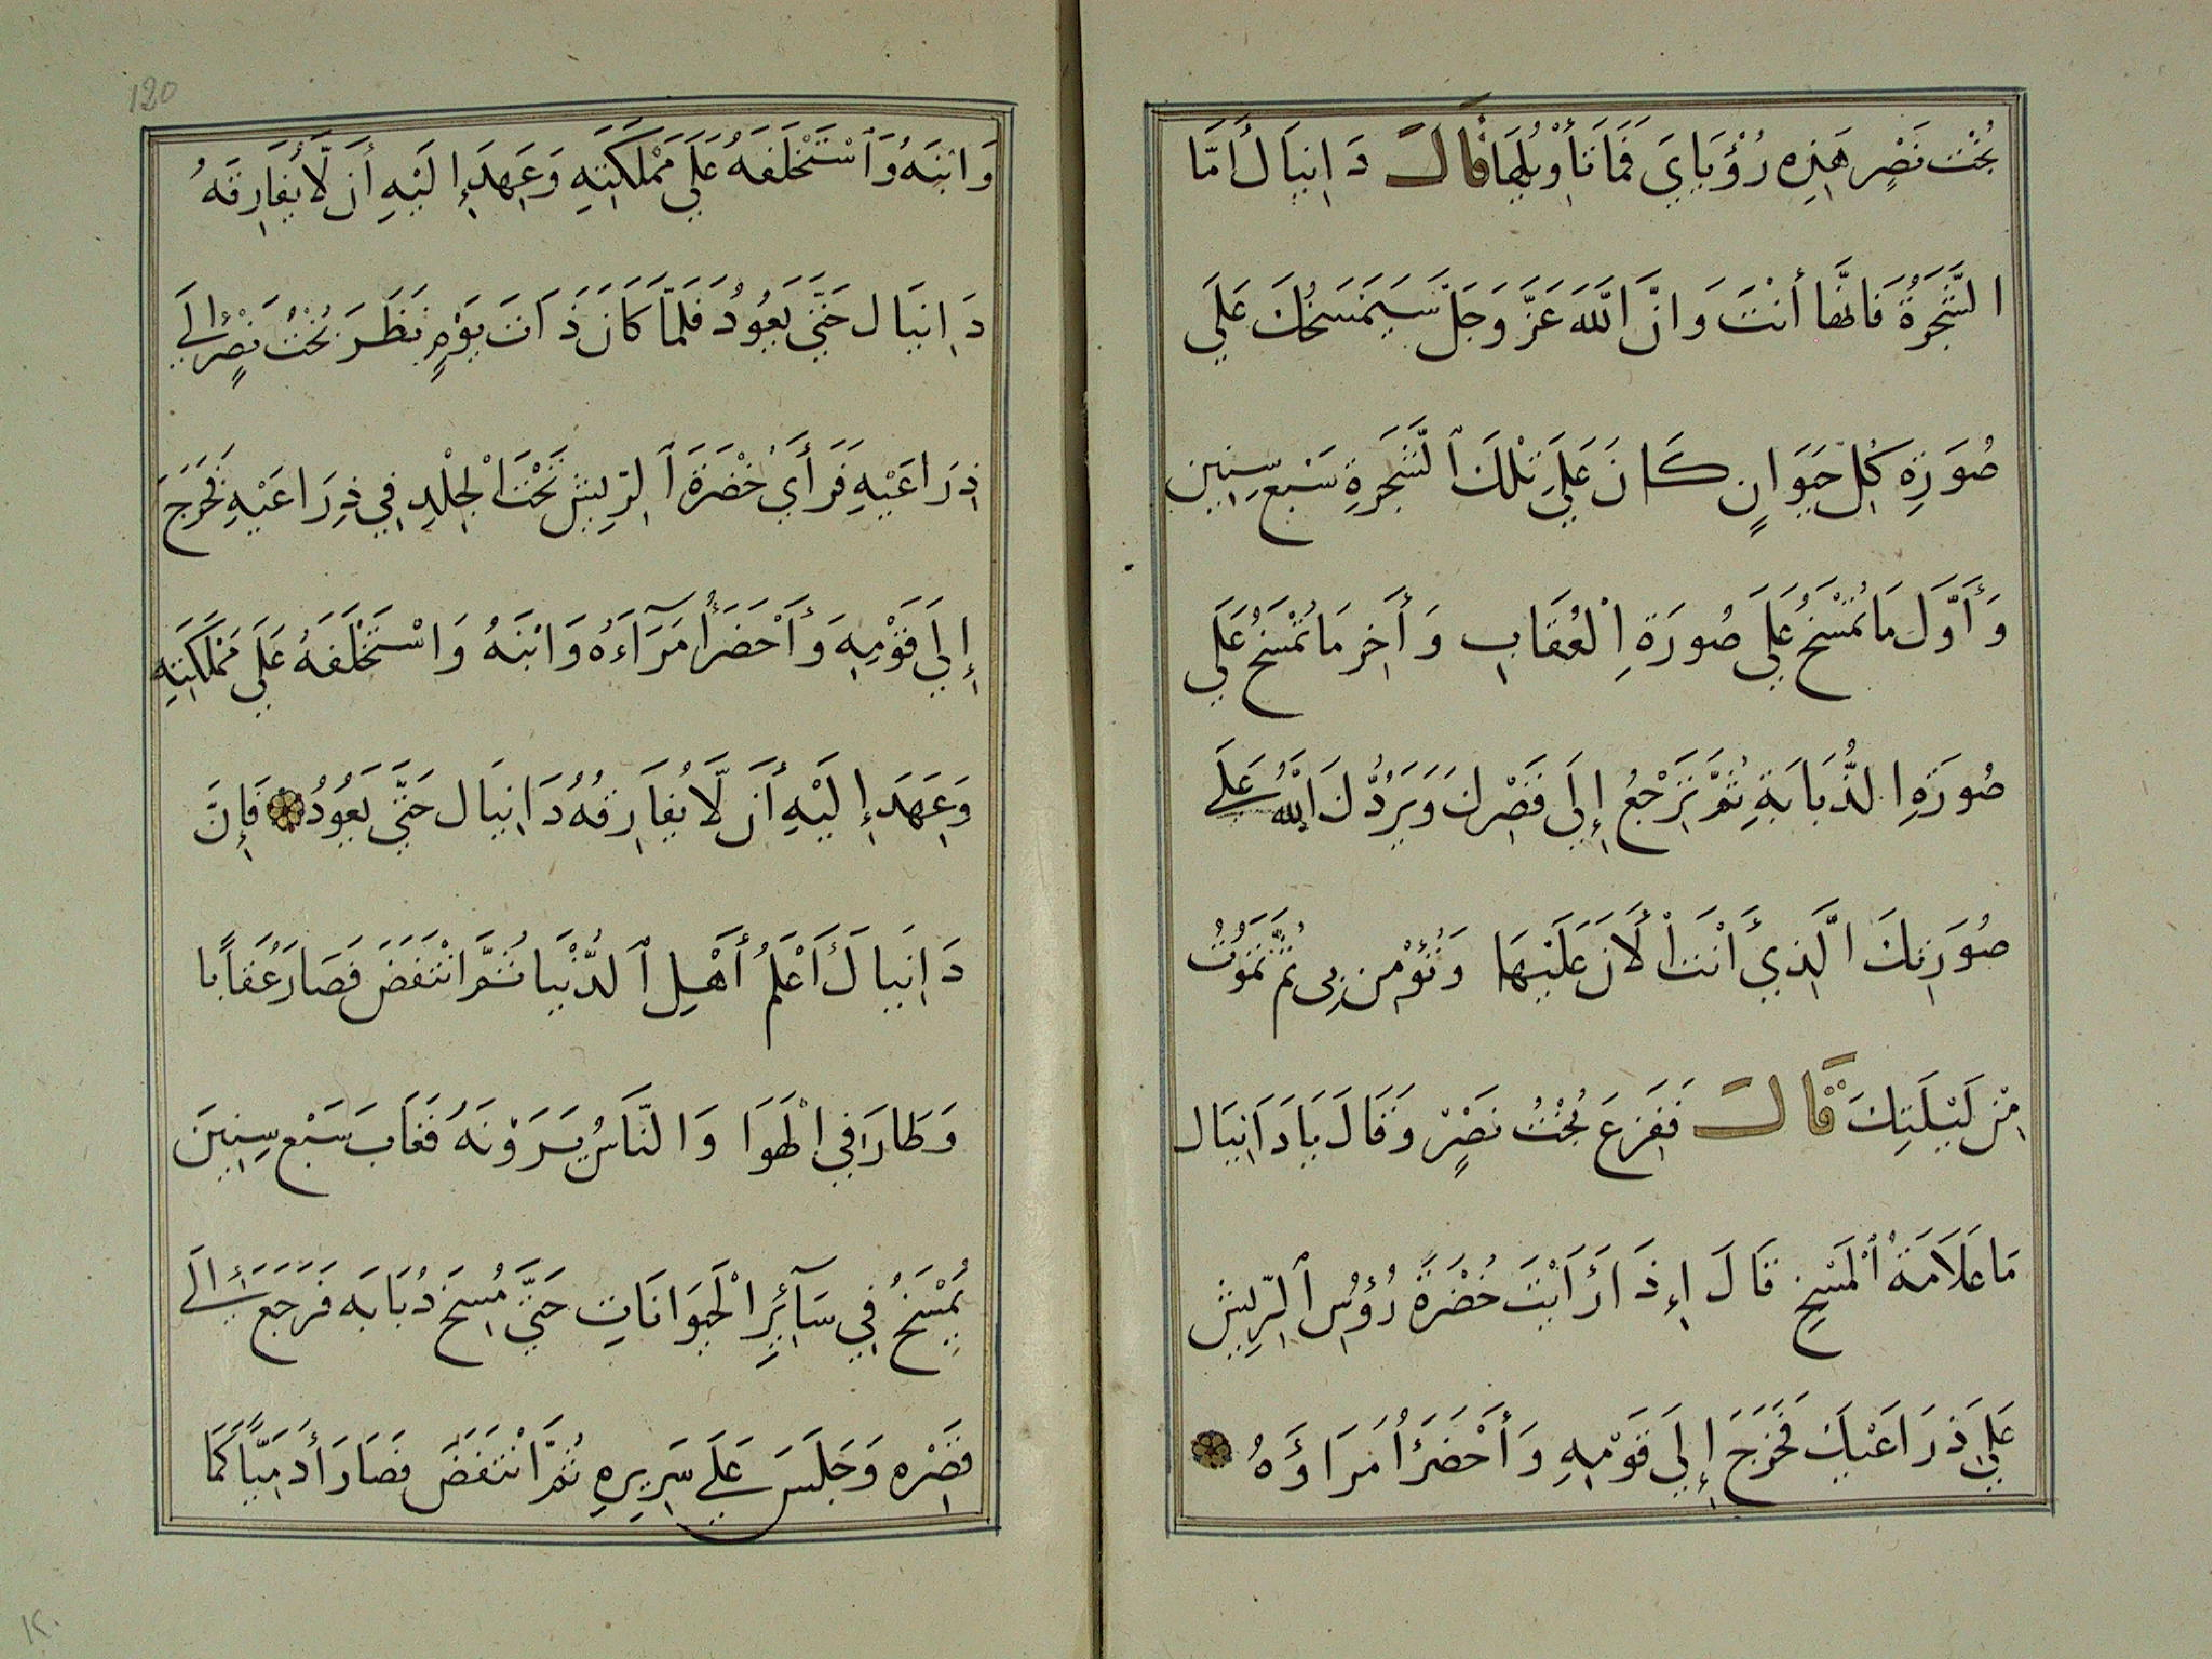 بُخْتَ نَصِّرٍ هَذِهِ رُؤْيَايَ فَمَا تَأْوِيلُهَا قَالَ دَانِيَالُ أَمَّا
الشَّجَرَةُ فَانَّهَا أَنْتَ وَانَّ اللَّهَ عَزَّ وَجَلَّ سَيَمْسَخُكَ عَلَى
صُورَةِ كُلِّ حَيَوَانٍ كَانَ عَلَى تِلْكَ الشَّجَرَةِ سَبْعَ سِنِينَ
وَأَوَّلَ مَا تُمْسَخُ عَلَى صُورَةِ الْعُقَابِ وَأَخِرَ مَا تُمْسَخُ عَلَى
صُورَةِ الذُّبَابَةِ ثُمَّ تَرْجِعُ إِلَى قَصْرِكَ وَيَرُدُّكَ اللَّهُ عَلَى
صُورَتِكَ الَّذِي أَنْتَ الْأَنَ عَلَيْهَا وَتُؤْمِنُ بِي ثُمَّ تَمُوتُ
مِنْ لَيْلَتِكَ قَالَ فَفَزِعَ بُخْتُ نَصِّرٍ وَقَالَ يَا دَانِيَال
مَا عَلَامَةُ الْمَسْخِ قَالَ إِذَا رَأَيْتَ خُضْرَةً رُؤُسِ الرِّيشِ
عَلَى ذِرَاعَيْكَ فَخَرَجَ إِلَى قَوْمِهِ وَأَحْضَرَ أُمَرَاؤَهُ
120
وَابْنَهُ وَاسْتَخْلَفَهُ عَلَى مَمْلَكَتِهِ وَعَهِدَ إِلَيْهِ أَن لَّا يُفَارِقَهُ
دَانِيَال حَتَّى يَعُودُ فَلَمَّا كَانَ ذَاتَ يَوْمٍ نَظَرَ بُخْتُ نَصِّرٍ إِلَى
ذِرَاعَيْهِ فَرَأَى خُضْرَةَ الرِّيشِ تَحْتَ الْجِلْدِ فِي ذِرَاعَيْهِ فَخَرَجَ
إِلَى قَوْمِهِ وَأَحْضَرَ أُمَرَآءَهُ وَابْنَهُ وَاسْتَخْلَفَهُ عَلَى مَمْلَكَتِهِ
وَعَهِدَ إِلَيْهِ أَن لَّا يُفَارِقُهُ دَانِيَال حَتَّى يَعُودُ فَإِنَّ
دَانِيَالَ أَعْلَمُ أَهْلِ الدُّنْيَا ثُمَّ انْتَفَضَ فَصَارَ عُقَابًا
وَطَارَ فِي الْهَوَا وَالنَّاسُ يَرَوْنَهُ فَغَابَ سَبْعَ سِنِينَ
يُمْسَخُ فِي سَآئِرِ الْحَيَوَانَاتِ حَتَّى مُسِخَ ذُبَابَه فَرَجَعَ إِلَى
قَصْرِهِ وَجَلَسَ عَلَى سَرِيرِهِ ثُمَّ انْتَفَضَ فَصَارَ أَدَمِيًّا كَمَا